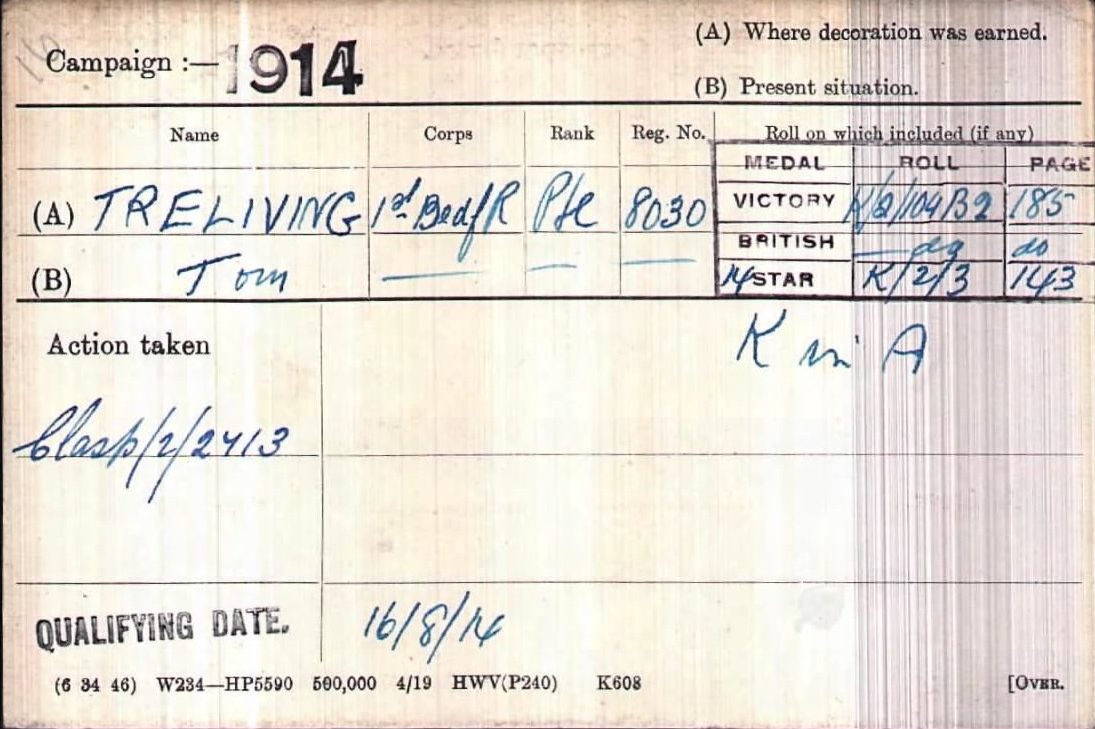 Campaign :— 1914
(A) Where decoration was earned.
(B) Present situation.
Name Corps Rank Reg. No. Roll on which included (if any)
MEDAL ROLL PAGE
(A) TRELIVING 1st Bedf R Pte 8030
VICTORY K/2/104B2 185
BRITISH — do do
(B) Tom
14 STAR K/2/3 143
Action taken
K in A
Clasp/2/2413
QUALIFYING DATE. 16/8/14
(6 34 46) W234—HP5590 500,000 4/19 HWV(P240) K608 [OVER.